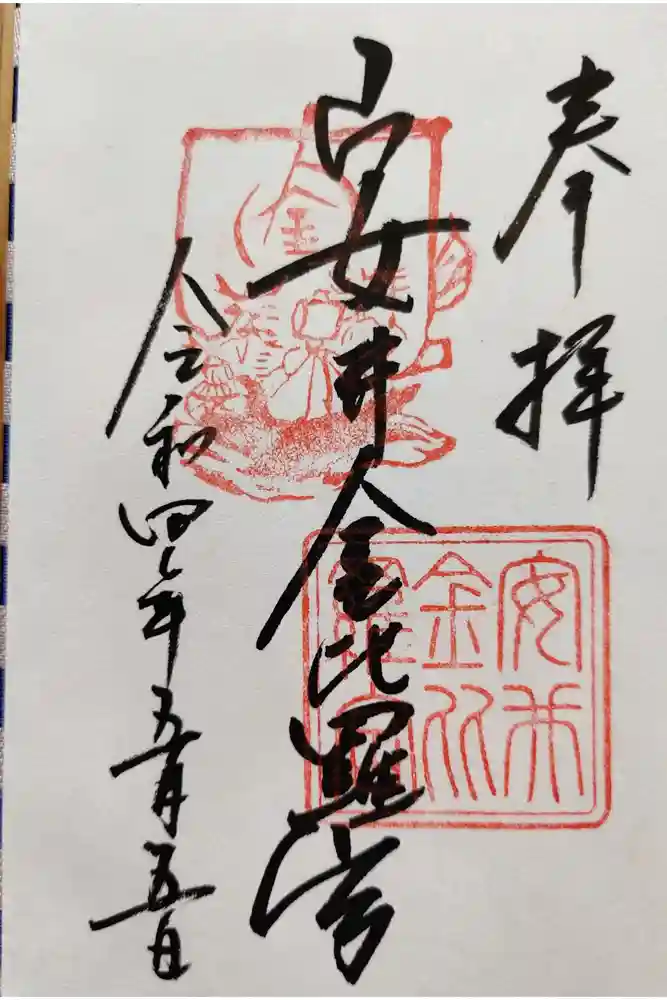 奉拝
安井金比羅宮
令和四年五月五日
安井
金比
羅宮
金